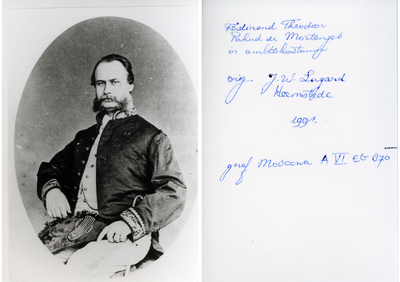 Ferdinand Theodoor
Pahud de Mortanges
in ambtskostuum
orig. J. W. Lugard
Heemstede
1991.
graf Moscowa A VI EG 270